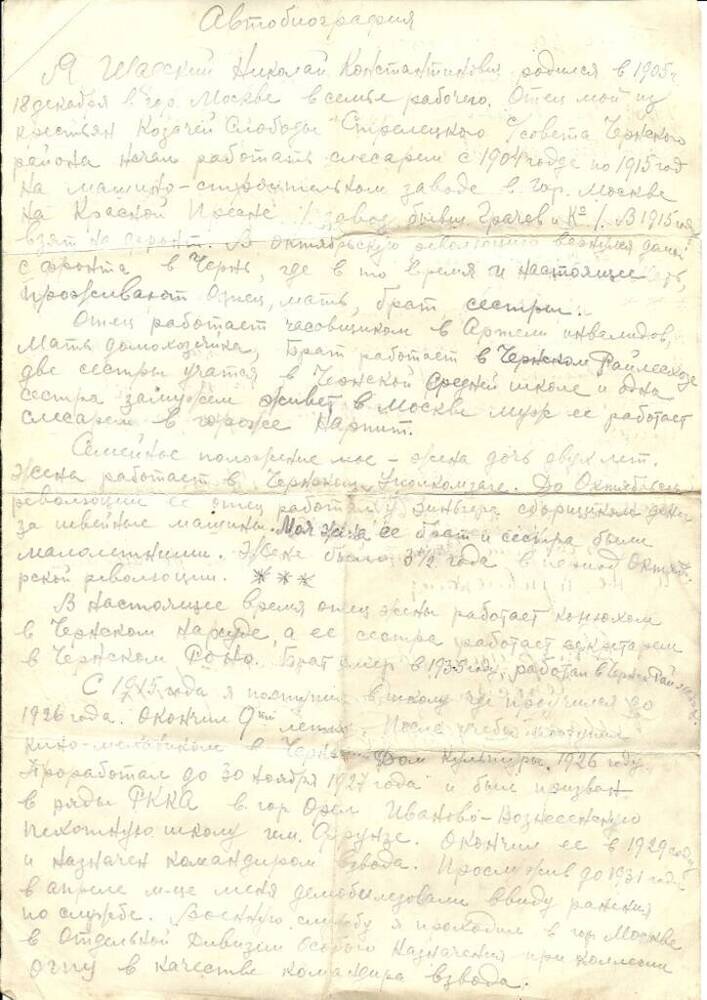 Автобиография
Я Шадский Николай Константинович родился в 1905 г
18 декабря в гор. Москве в семье рабочего. Отец мой из
крестьян Козачей Слободы Стрелецкого С/совета Чернского
района начал работать слесарем с 1904 годе по 1915 год
на машино-строительном заводе в гор. Москве
на Красной Пресне. /завод бывш Грачев и Кº/. В 1915 году
взят на фронт. В октябрьскую революцию вернулся
с фронта в Чернь, где в то время и настоящее
проживают Отец, мать, брат, сестры.
Отец работает часовщиком в Артели инвалидов,
Мать домохозяйка, Брат работает в Чернском Райлесхозе
две сестры учатся в Чернской Средней школе и одна
сестра замужем живет в Москве муж ее работает
слесарем в гараже Нарпит.
Семейное положение мое - жена дочь двух лет.
Жена работает в Чернском. До Октябрьск
революции ее отец работал у Зингера сборщиком денег
за швейные машины. Моя жена ее брат и сестра были
малолетними. Жене было 3½ года в период Октяб.
рской революции. ***
В настоящее время отец жены работает конюхом
в Чернском Нарсуде, а ее сестра работает секретарем
в Чернском РОНО. Брат умер в 1935 году, работал в
С 1915 года я поступил в школу где проучился до
1926 года. Окончил 9ти летку. После учебы поступил
кино-механиком в Чернский Дом Культуры. 1926 году
Проработал до 30 ноября 1927 года и был призван
в ряды РККА в гор Орел Иваново-Вознесенскую
пехотную школу им. Фрунзе. Окончил ее в 1929 году
и назначен командиром взвода. Прослужив до 1931 года
в апреле м-це меня демобилизовали ввиду ранения
по службе. Военную службу я проходил в гор Москве
в Отдельной Дивизии Особого Назначения при коллегии
ОГПУ в качестве командира взвода.